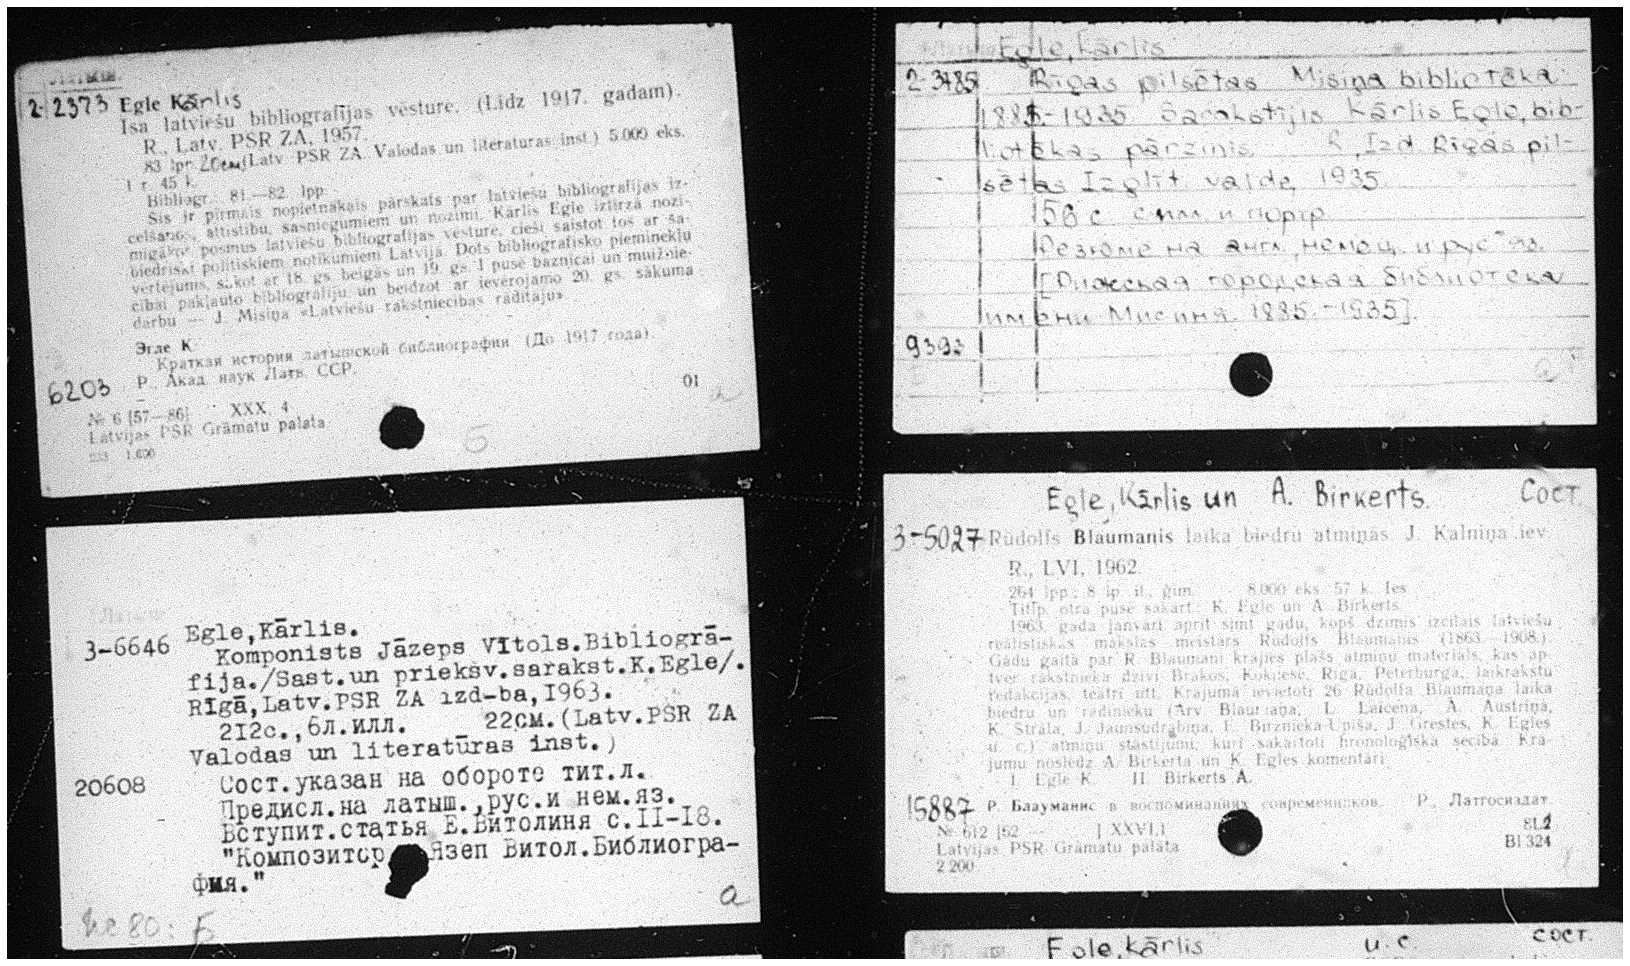 2-2373 Egle Kārlis
Īsa latviešu bibliografijas vēsture. (Līdz 1917. gadam).
R., Latv. PSR ZA, 1957.
83 lpp. 20см (Latv. PSR ZA. Valodas un literaturas inst.) 5.000 eks.
1 r. 45 k.
Bibliogr.: 81.—82. lpp.
Šis ir pirmais nopietnākais pārskats par latviešu bibliografijas iz-
celšanos, attīstību, sasniegumiem un nozīmi. Kārlis Egle iztirzā nozī-
mīgākos posmus latviešu bibliografijas vēsturē, cieši saistot tos ar sa-
biedriski politiskiem notikumiem Latvijā. Dots bibliografisko pieminekļu
vērtējums, sākot ar 18. gs. beigās un 19. gs. I pusē baznīcai un muižnie-
cībai pakļauto bibliografiju un beidzot ar ievērojamo 20. gs. sākuma
darbu — J. Misiņa «Latviešu rakstniecības rādītāju».
Эгле К.
Краткая история латышской библиографии (До 1917 года).
6203 Р., Акад. наук Латв. ССР.
01
№ 6 [57—86] XXX, 4
Latvijas PSR Grāmatu palata
1.600
Б
Egle, Kārlis
2-3485 Rīgas pilsētas Misiņa bibliotēka
1885.-1935 Sarakstījis Kārlis Egle, bib-
liotēkas pārzinis. R., Izd. Rīgas pil-
sētas Izglīt. valde, 1935.
56 с. с илл. и портр.
Резюме на англ., немец. и рус. яз.
[Рижская городская библиотека
имени Мисиня. 1885.-1935].
9393
Egle, Kārlis.
3-6646 Komponists Jāzeps Vītols. Bibliogrā-
fija./Sast. un priekšv. sarakst. K. Egle/.
Rīgā, Latv. PSR ZA izd-ba, 1963.
212с., 6л. илл. 22см. (Latv. PSR ZA
Valodas un literatūras inst.)
20608 Сост. указан на обороте тит. л.
Предисл. на латыш., рус. и нем. яз.
Вступит. статья Е. Витолиня с. 11-18.
"Композитор Язеп Витол. Библиогра-
фия."
80: Б
a
Egle, Kārlis un A. Birkerts. Сост.
3-5027 Rūdolfs Blaumanis laika biedru atmiņās. J. Kalniņa iev.
R., LVI, 1962.
264 lpp.; 8 lp. il., ģīm. 8.000 eks. 57 k. Ies.
Titlp. otrā pusē sakārt.: K. Egle un A. Birkerts.
1963. gada janvārī aprit simt gadu, kopš dzimis izcilais latviešu
reālistiskās mākslas meistars Rūdolfs Blaumanis (1863.—1908.).
Gadu gaitā par R. Blaumani krājies plašs atmiņu materiāls, kas ap-
tver rakstnieka dzīvi Brakos, Koknesē, Rīgā, Pēterburgā, laikrakstu
redakcijās, teātrī utt. Krājumā ievietoti 26 Rūdolfa Blaumaņa laika
biedru un radinieku (Arv. Blaumaņa, L. Laicena, A. Austriņa,
K. Štrāla, J. Jaunsudrabiņa, E. Birznieka-Upīša, J. Grestes, K. Egles
u. c.) atmiņu stāstījumi, kuri sakārtoti hronoloģiskā secībā. Krā-
jumu noslēdz A. Birkerta un K. Egles komentāri.
I. Egle K. II. Birkerts A.
15887 Р. Блауманис в воспоминаниях современников. Р., Латгосиздат.
№ 612 [62 — ] XXVI,1 8L2
Latvijas PSR Grāmatu palata Bl 324
2 200
Egle, Kārlis u. c. сост.